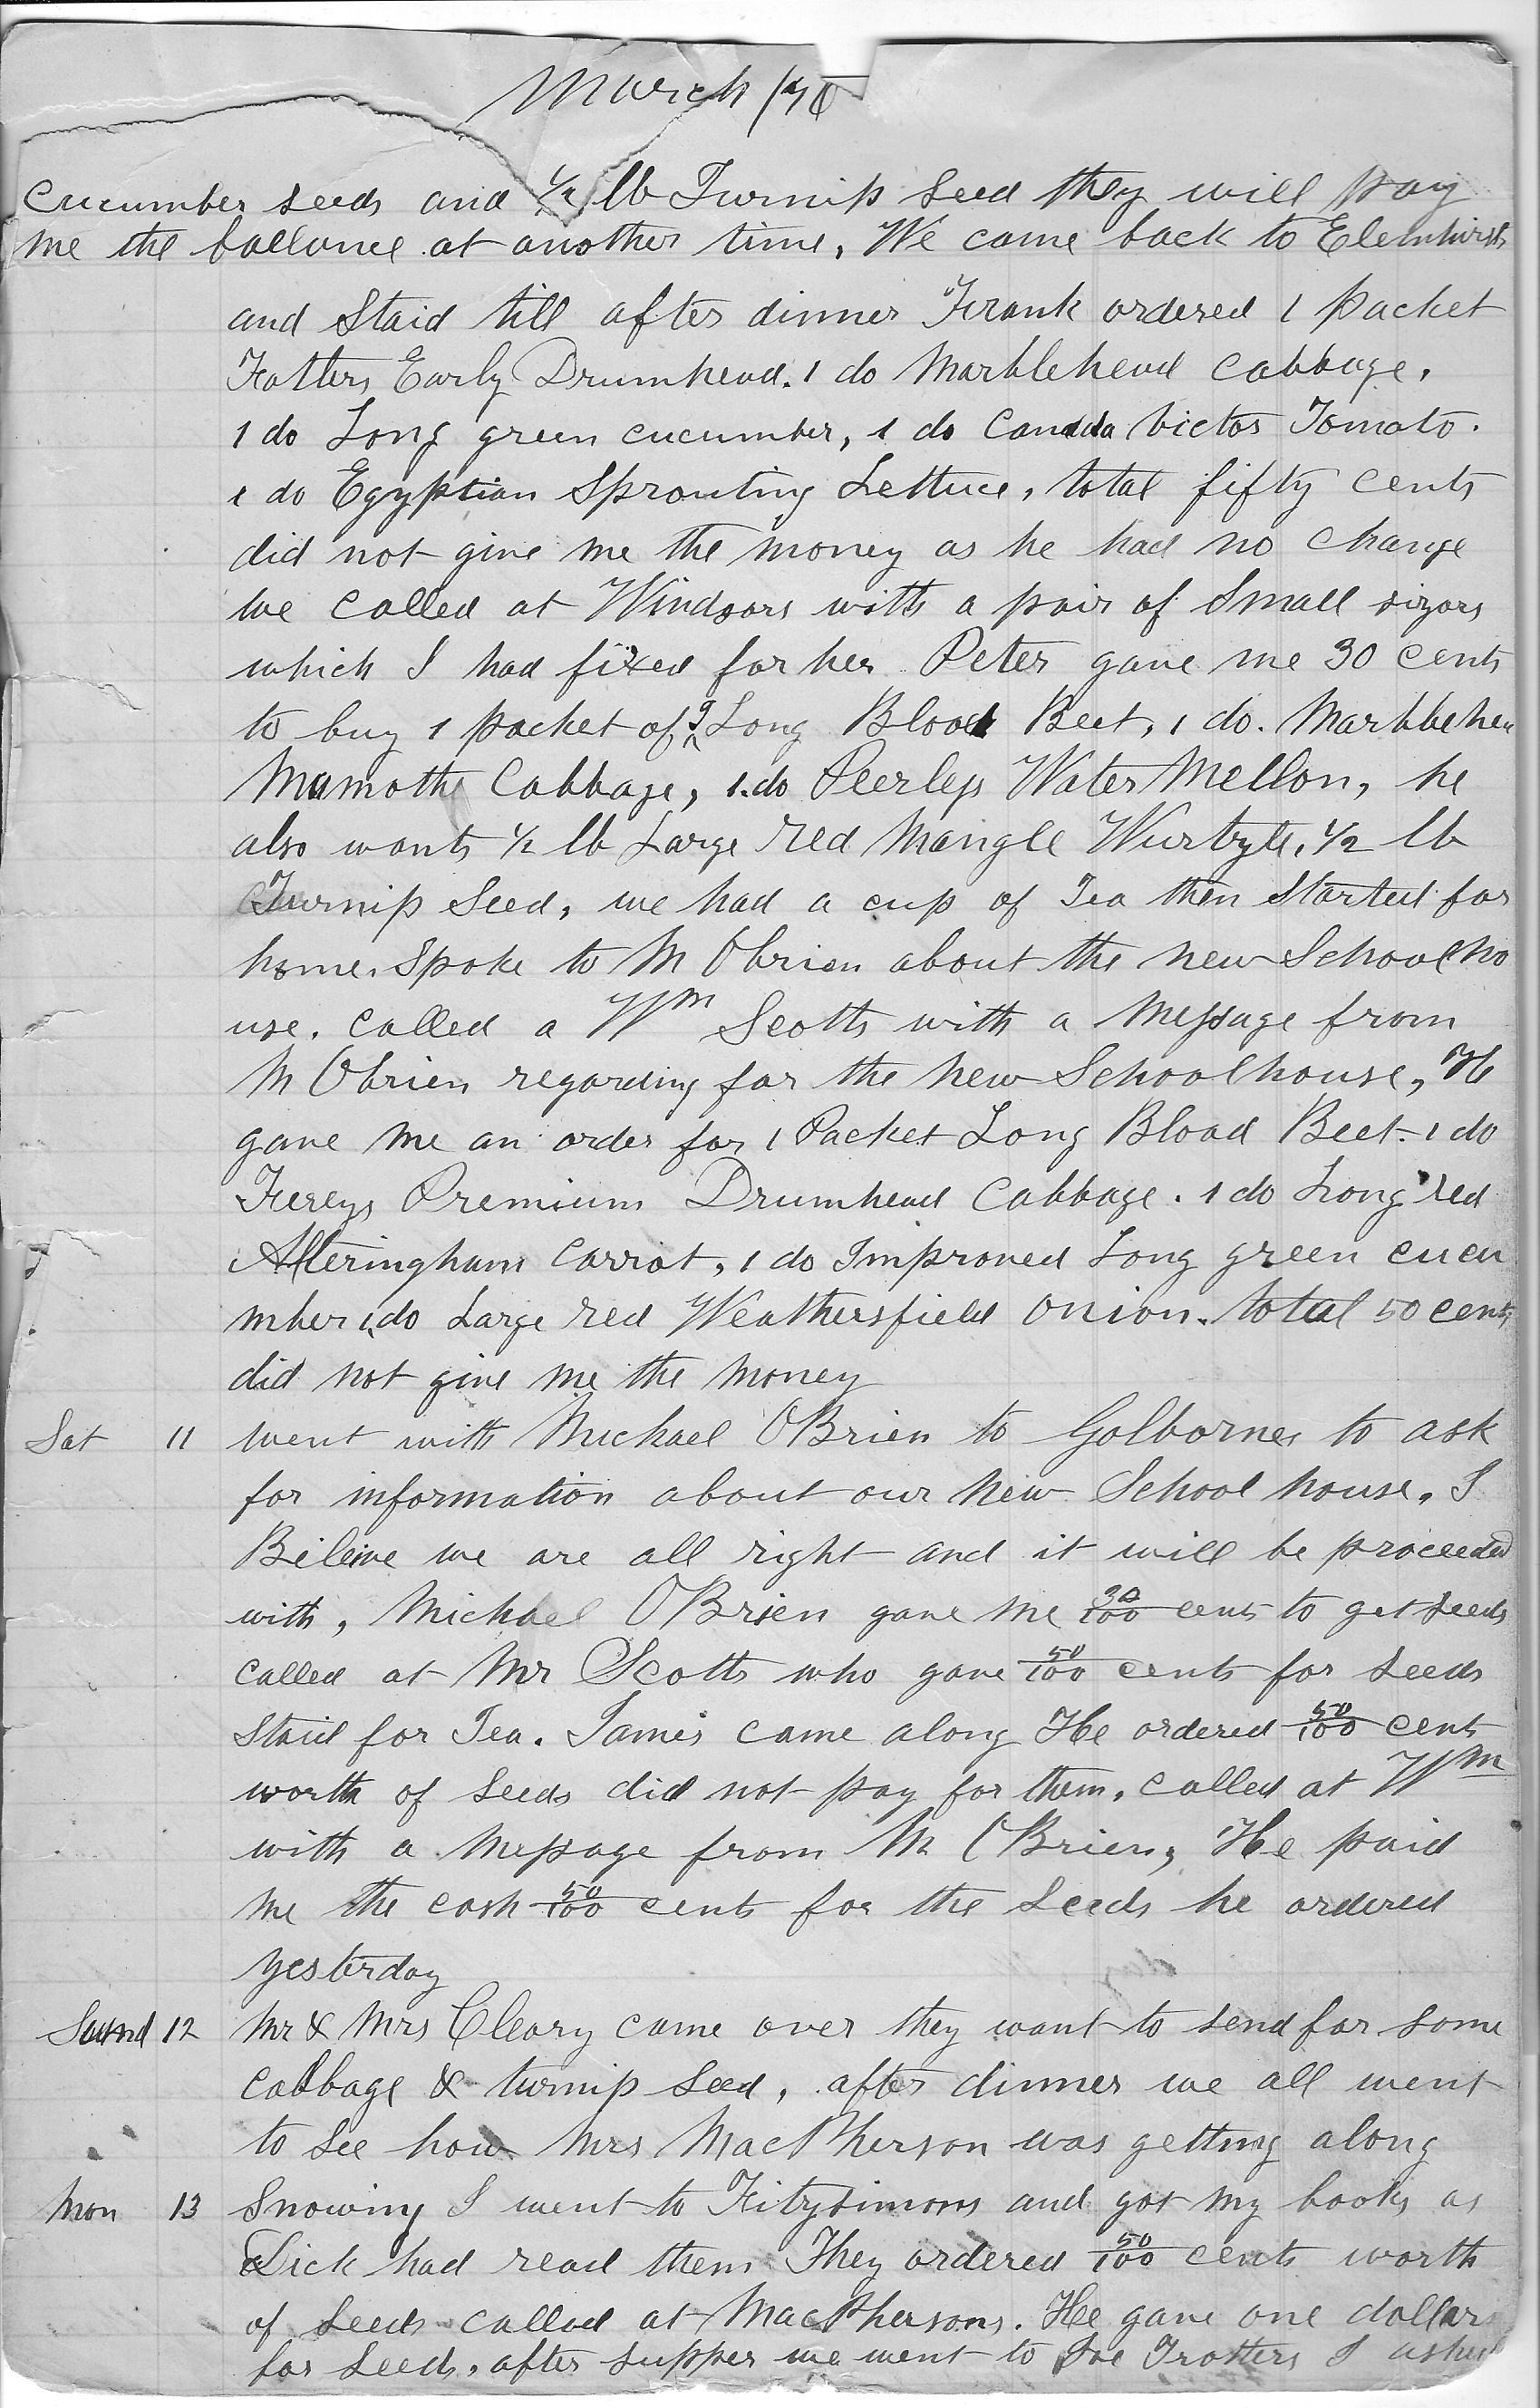 March /70
cucumber seeds and 1/2 lb Turnip Seed they will pay
me the ballance at another time, We came back to Elemhirsts
and Staid till after dinner Frank ordered 1 packet
Fotters Early Drumhead. 1 do Marblehead Cabbage,
1 do Long green cucumber, 1 do Canada Victor Tomato.
1 do Egyptian Sprouting Lettuce, total fifty cents
did not give me the money as he had no change
we called at Windsors with a pair of Small sizors
which I had fixed for her Peter gave me 30 cents
to buy 1 packet of Long Blood Beet, 1 do. Marblehea
Mamoth Cabbage, 1 do Peerless Water Mellon, he
also wants 1/2 lb Large red Mangle Wurtzle, 1/2 lb
Turnip Seed, we had a cup of Tea then Started for
home. Spoke to M Obrien about the new School ho
use. called a Wm Scotts with a Message from
M Obrien regarding for the new Schoolhouse, He
gave me an order for 1 Packet Long Blood Beet. 1 do
Premium Drumhead Cabbage. 1 do Long red
Alteringham Carrot, 1 do Improved Long green cucu
mber 1 do Large red Weathersfield Onion. total 50 cents
did not give me the money
Sat 11 went with Michael OBrien to Golbornes to ask
for information about our new School house, I
Beleive we are all right and it will be proceeded
with, Michael OBrien gave me 30/100 cents to get seeds
called at Mr Scotts who gave 50/100 cents for seeds
Staid for Tea. James came along He ordered 50/100 cents
worth of seeds did not pay for them, called at Wm
with a Message from M OBrien, He paid
me the cash 50/100 cents for the Seeds he ordered
yesterday
Sund 12 Mr & Mrs Cleary came over they want to send for some
cabbage & turnip seed, after dinner we all went
to see how Mrs MacPherson was getting along
Mon 13 Snowing I went to Fitzsimons and got my books as
Dick had read them They ordered 50/100 cents worth
of seeds called at MacPhersons. He gave one dollar
for seeds, after supper we went to Joe Trotters I asked